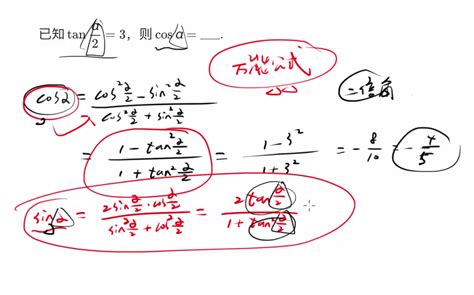 已知 tan α/2 = 3，则 cos α = ___.
万能公式
cosα = (cos² α/2 - sin² α/2) / (cos² α/2 + sin² α/2)
二倍角
= (1 - tan² α/2) / (1 + tan² α/2) = (1 - 3²) / (1 + 3²) = - 8/10 = - 4/5
sinα = (2 sin α/2 · cos α/2) / (sin² α/2 + cos² α/2) = (2 tan α/2) / (1 + tan² α/2)